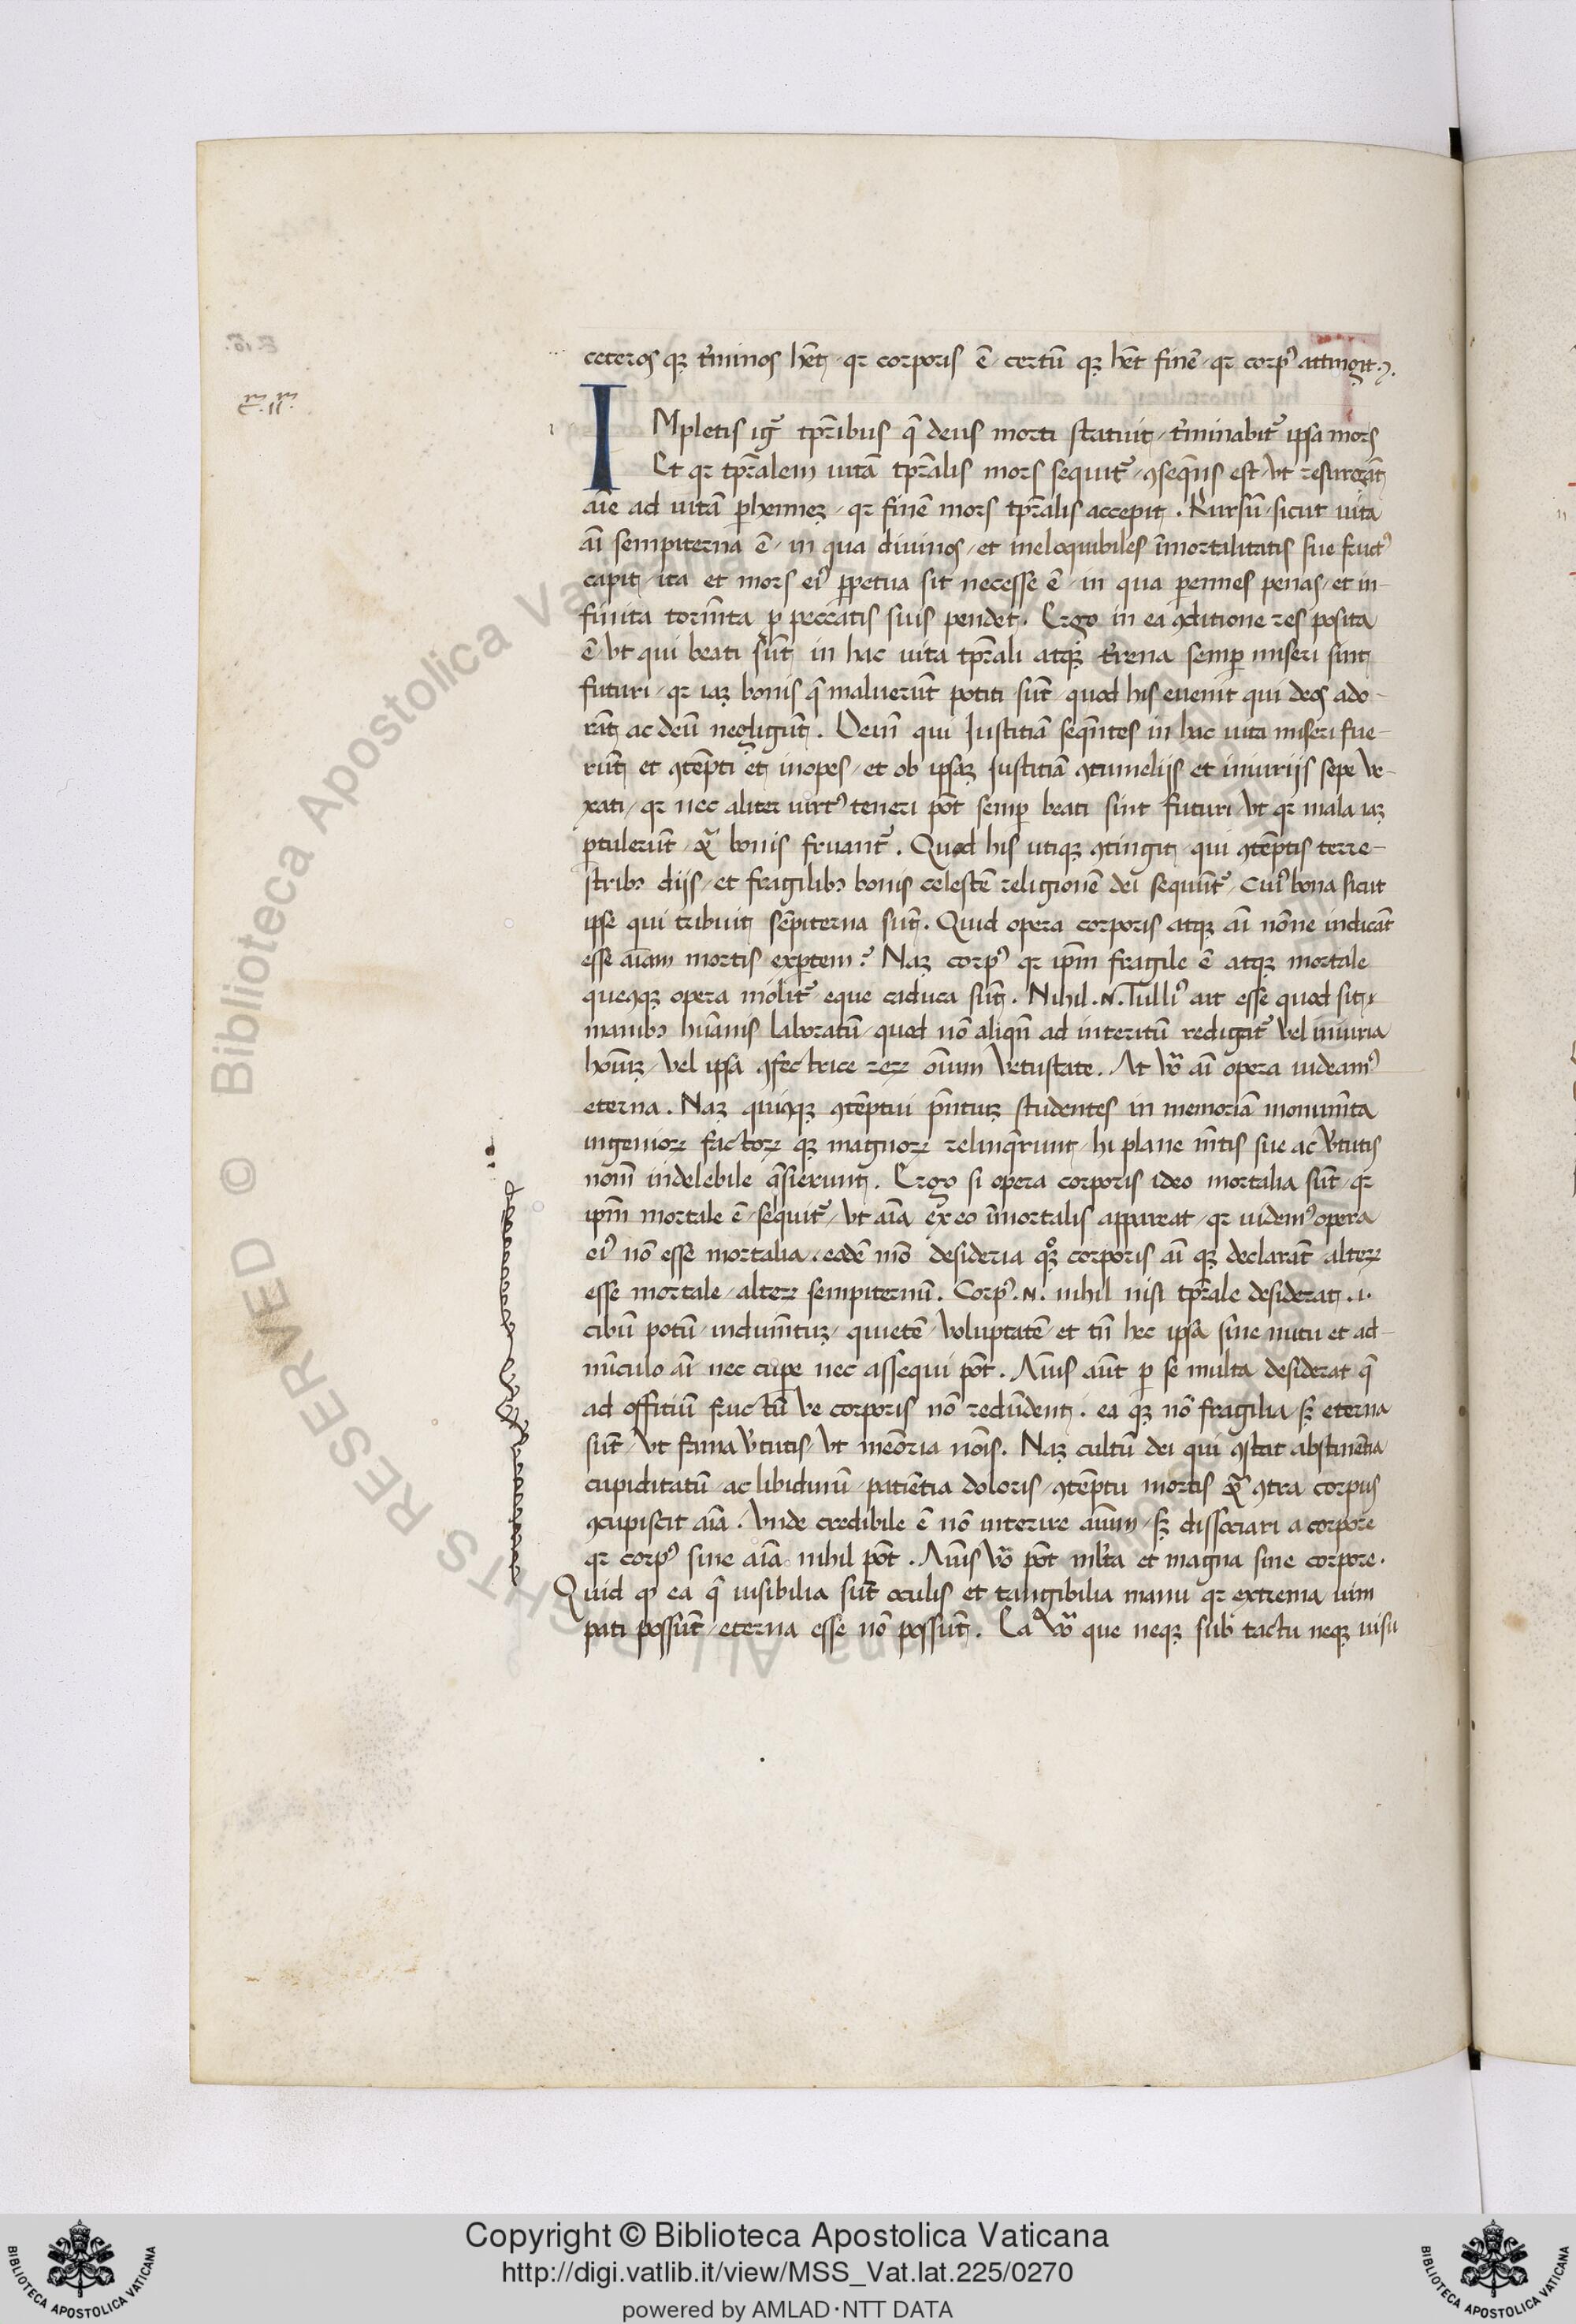 ceteros qꝫ t͛minos hn̄t qꝛ corporis ē certū qꝫ hn̄t finē qꝛ corpꝰ attingit.
IMpletis igr̄ tꝑribus q̄ deus morti statuit / t͛minabit᷑ ipsa mors
Et qꝛ tꝑralem uitā tꝑralis mors sequit᷑ / ꝯseq̄ns est / vt resurgāt
aīe ad uitā ꝑhennez / qꝛ finē mors tꝑralis accepit . Rursū / sicut uita
aī sempiterna ē / in qua diuinos / et ineloquibiles īmortalitatis sue fructꝰ
capit / ita et mors eiꝰ ꝑpetua sit necesse ē / in qua ꝑennes penas / et in-
finita torm̄ta ꝓ peccatis suis pendet . Ergo in ea ꝯditione res posita
ē vt qui beati sūt in hac uita tꝑrali atqꝫ t͛rena semꝑ miseri sint
futuri / qꝛ iaꝫ bonis q̄ maluerūt potiti sūt / quod his euenit qui deos ado-
rāt ac deū negligūt . Dein̄ qui Iustitiā seq̄ntes in hac uita miseri fue-
rūt et ꝯtēpti et inopes / et ob ipsaꝫ Iustitiā ꝯtumelijs et iniurijs sepe ve-
xati / qꝛ nec aliter uirtꝰ teneri pōt semꝑ beati sint futuri / vt qꝛ mala iaꝫ
ꝑtulerūt / bonis fruant᷑ . Quod his utiqꝫ ꝯtingit / qui ꝯtēptis terre-
stribꝫ dijs / et fragilibꝫ bonis celestē religionē dei sequūt᷑ / cuiꝰ bona sicut
ipse qui tribuit sēpiterna sūt . Quid opera corporis atqꝫ aī nōne indicāt
esse aīam mortis exꝑtem ? Naꝫ corpꝰ qꝛ ip̄m fragile ē atqꝫ mortale
quecqꝫ opera molit᷑ eque caduca sūt . Nihil .N. Tulliꝰ ait esse quod sit
manibꝫ hūanis laboratū / quod nō aliqn̄ ad interitū redigat᷑ vel iniuria
hoīuꝫ / vel ipsa ꝯfectrice reꝝ oīum vetustate . At v͛o aī opera uideamꝰ
eterna . Naꝫ quicqꝫ ꝯtēptui pn̄tiuꝫ studentes in memoriā monum̄ta
ingenioꝝ factoꝝ qꝫ magnoꝝ relinq̄runt / hi plane m̄tis sue ac v͛tutis
nom̄ indelebile q̄sierunt . Ergo si opera corporis ideo mortalia sūt / qꝛ
ip̄m mortale ē / sequit᷑ / vt aīa ex eo īmortalis appareat / qꝛ uidemꝰ opera
eiꝰ nō esse mortalia . eodē mō desideria qꝫ corporis aī qꝫ declarāt alteꝝ
esse mortale / alteꝝ sempiternū . Corpꝰ .N. nihil nisi tꝑrale desiderat .i.
cibū potū / indum̄tuꝫ / quietē / voluptatē / et tn̄ hec ipsa sine nutu et ad-
mīculo aī nec cuꝑe nec assequi pōt . Aīus aūt ꝑ se multa desiderat q̄
ad offitiū fructū ve corporis nō redūdent . ea qꝫ nō fragilia / sꝫ eterna
sūt / vt fama v͛tutis / vt memōria noīs . Naꝫ cultū dei qui ꝯstat abstinētia
cupiditatū / ac libidinū / patiētia doloris / ꝯtēptu mortis ꝯtra corpus
ꝯcupiscit aīa . Unde credibile ē nō interire aīum / sꝫ dissociari a corpore
qꝛ corpꝰ sine aīa nihil pōt . Aīus v͛o pōt ml̄ta et magna sine corpore .
Quid ꝙ ea q̄ uisibilia sūt oculis et tangibilia manu qꝛ extrema uim
pati possūt / eterna esse nō possūt . Ea v͛o que neqꝫ sub tactu neqꝫ uisu
RESERVED © Biblioteca Apostolica Vaticana
Copyright © Biblioteca Apostolica Vaticana
http://digi.vatlib.it/view/MSS_Vat.lat.225/0270
powered by AMLAD·NTT DATA
BIBLIOTECA APOSTOLICA VATICANA
BIBLIOTECA APOSTOLICA VATICANA